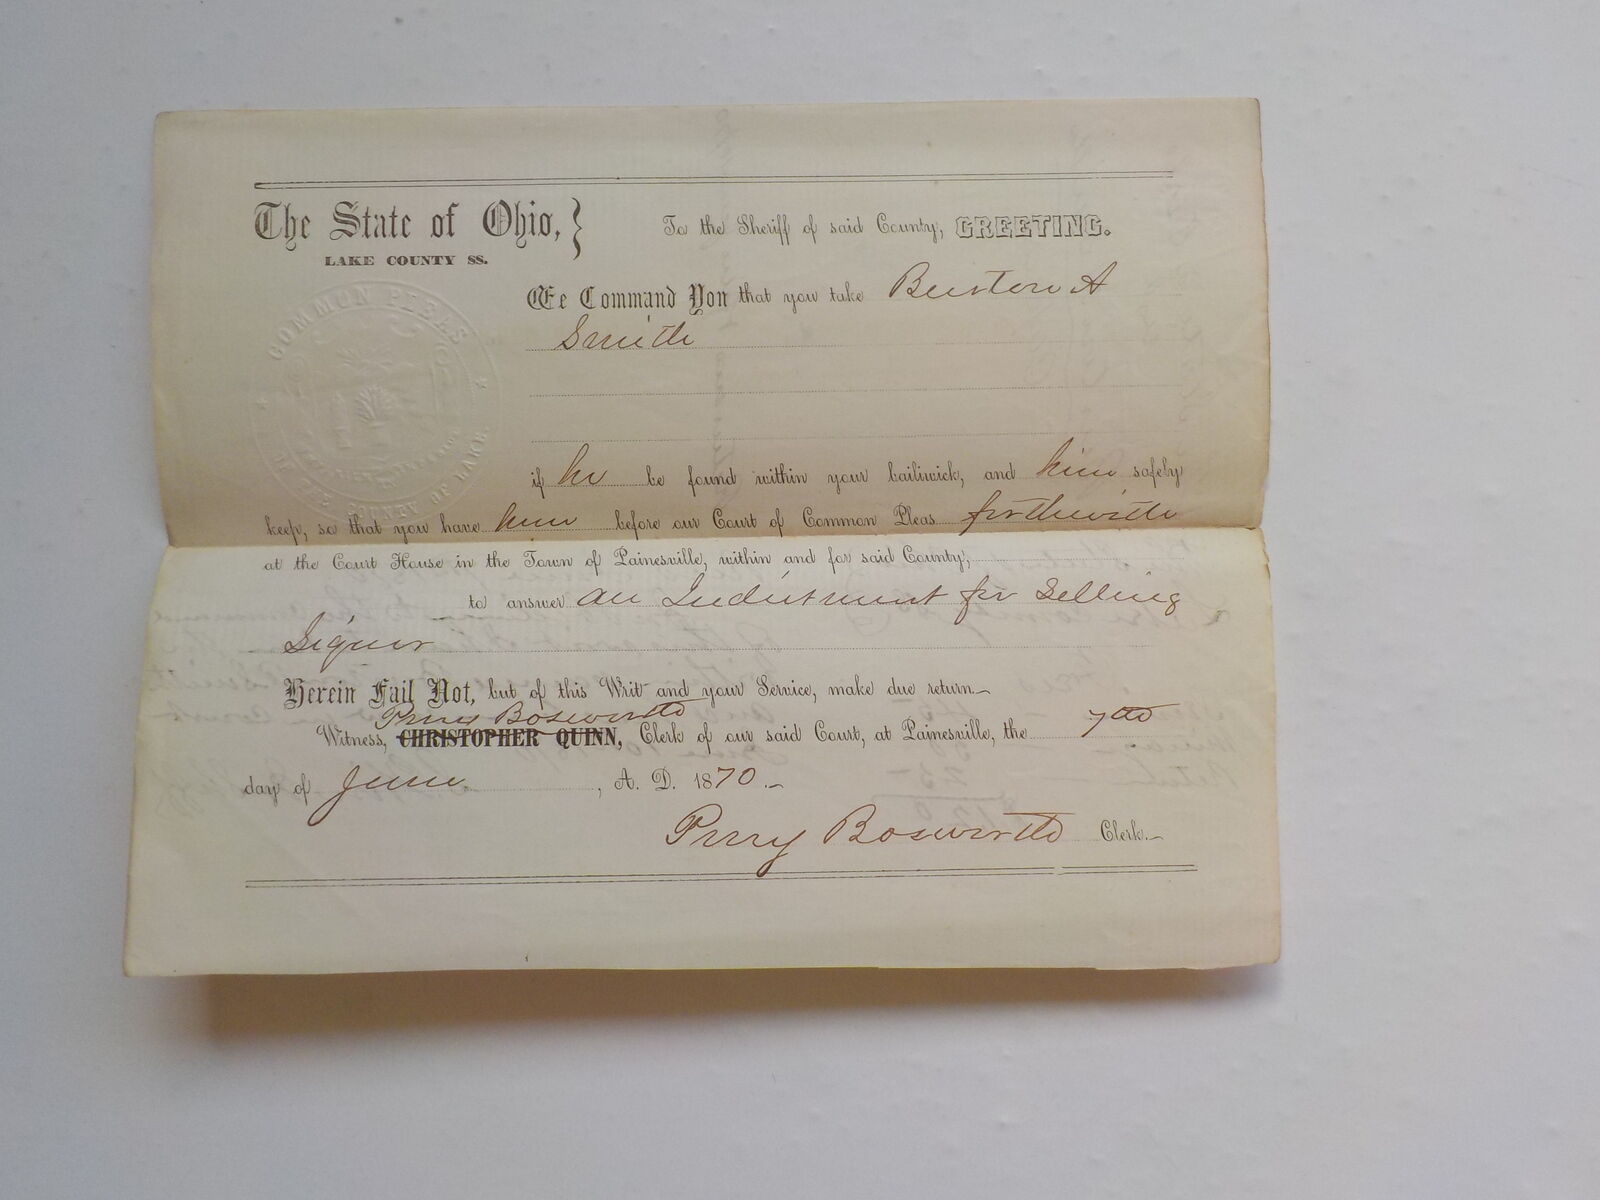 The State of Ohio, }
LAKE COUNTY SS.
To the Sheriff of said County, GREETING.
We Command You that you take Burton A
Smith
COMMON PLEAS
COUNTY OF LAKE
if he be found within your bailiwick, and him safely
keep, so that you have him before our Court of Common Pleas forthwith
at the Court House in the Town of Painesville, within and for said County,
to answer an Indictment for Selling
Liquor
Herein Fail Not, but of this Writ and your Service, make due return
Perry Bosworth
Witness, CHRISTOPHER QUINN, Clerk of our said Court, at Painesville, the 7th
day of June, A. D. 1870.
Perry Bosworth Clerk.